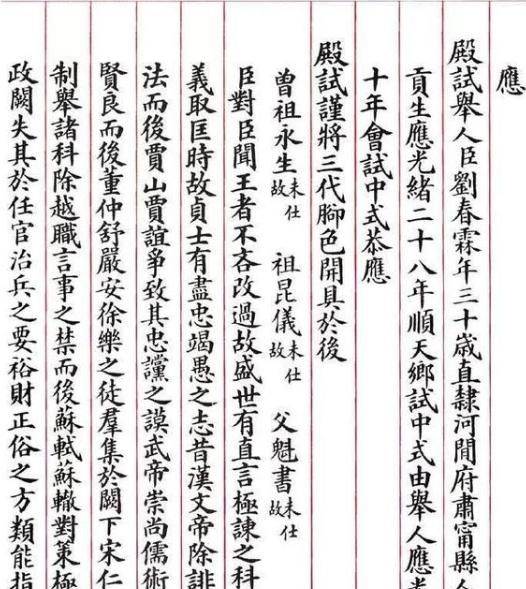 應
殿試舉人臣劉春霖年三十歲直隸河間府肅甯縣人
貢生應光緒二十八年順天鄉試中式由舉人應光
十年會試中式恭應
殿試謹將三代腳色開具於後
曾祖永生未仕故 祖昆儀未仕故 父魁書未仕故
臣對臣聞王者不吝改過故盛世有直言極諫之科
義取匡時故貞士有盡忠竭愚之志昔漢文帝除誹
法而後賈山賈誼爭致其忠讜之謨武帝崇尚儒術
賢良而後董仲舒嚴安徐樂之徒羣集於闕下宋仁
制舉諸科除越職言事之禁而後蘇軾蘇轍對策極
政闕失其於任官治兵之要裕財正俗之方類能指